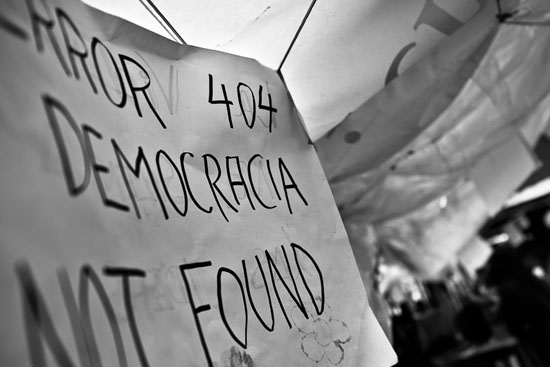 ERROR 404
DEMOCRACIA
NOT FOUND